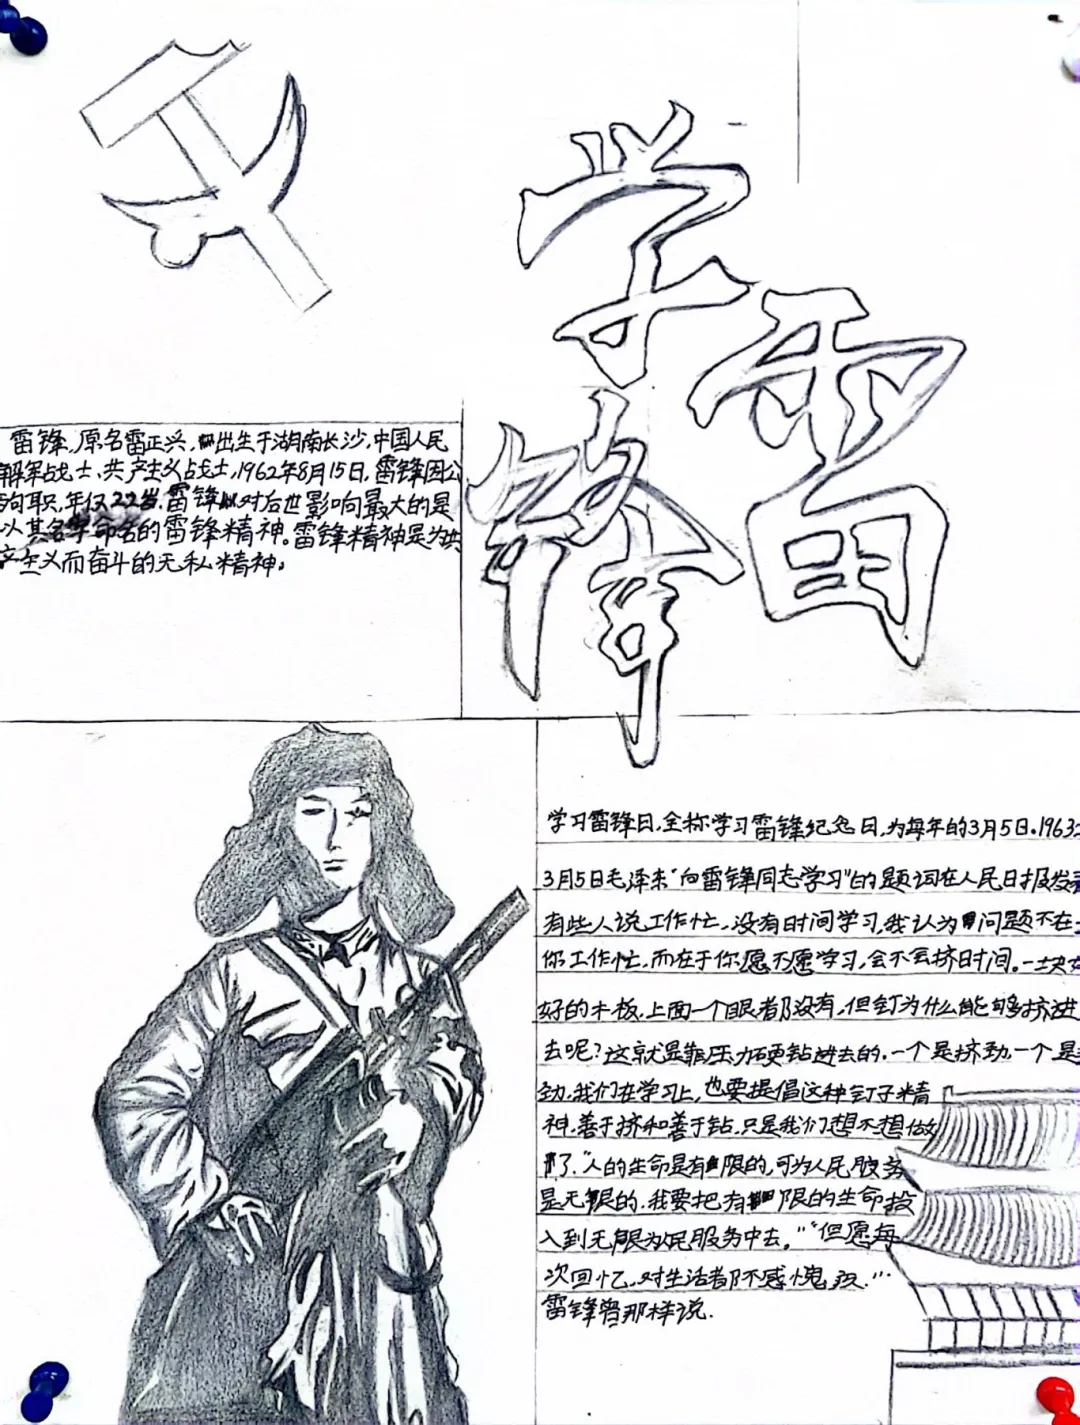 学雷锋
雷锋,原名雷正兴,出生于湖南长沙,中国人民
解军战士,共产主义战士,1962年8月15日,雷锋因公
殉职,年仅22岁.雷锋对后世影响最大的是
以其名字命名的雷锋精神。雷锋精神是为共
产主义而奋斗的无私精神。
学习雷锋日,全称学习雷锋纪念日,为每年的3月5日.1963
3月5日毛泽东"向雷锋同志学习"的题词在人民日报发
有些人说工作忙,没有时间学习,我认为问题不在
你工作忙,而在于你愿不愿学习,会不会挤时间。一块
好的木板,上面一个眼都没有,但钉为什么能够挤进
去呢?这就是靠压力硬钻进去的.一个是挤劲,一个是
劲,我们在学习上,也要提倡这种钉子精
神,善于挤和善于钻.只是我们想不想做
了."人的生命是有限的,可为人民服务
是无限的,我要把有限的生命投
入到无限为民服务中去。""但愿每
次回忆,对生活都不感愧疚."…
雷锋曾那样说.